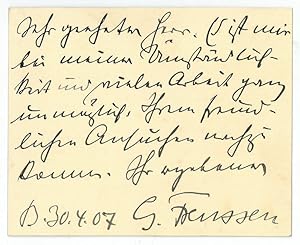 Sehr geehrter Herr. Es ist mir
bei meiner Umständlich-
keit und vielen Arbeit ganz
unmöglich, Ihrem freund-
lichen Ansuchen nachzu
kommen. Ihr ergebener
B. 30.4.07 G. Frenssen